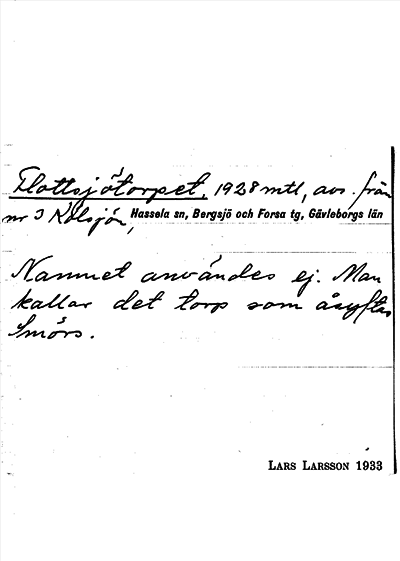 Flottsjötorpet, 1928 mtl, avs. från
nr 3 Kölsjön, Hassela sn, Bergsjö och Forsa tg, Gävleborgs län
Namnet användes ej. Man
kallar det torp som åsyftas
Smörs.
LARS LARSSON 1933